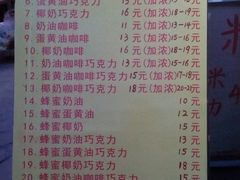 6. 蛋黄油巧克力 13元(加浓)
7. 椰奶巧克力 16元(加浓)18-19元
8. 奶油咖啡 11元(加浓)13-14元
9. 蛋黄油咖啡 13元(加浓)
10. 椰奶咖啡 16元(加浓)18-19元
11. 奶油巧克力咖啡 13元(加浓)
12. 蛋黄油巧克力咖啡 15元(加浓)17-18元
13. 椰奶巧克力咖啡 18元(加浓)20-21元
14. 蜂蜜奶油 10元
15. 蜂蜜蛋黄油 12元
16. 蜂蜜椰奶 15元
17. 蜂蜜奶油巧克力 13元
18. 蜂蜜蛋黄油巧克力 15元
19. 蜂蜜椰奶巧克力 18元
20. 蜂蜜奶油巧克力 15元
米